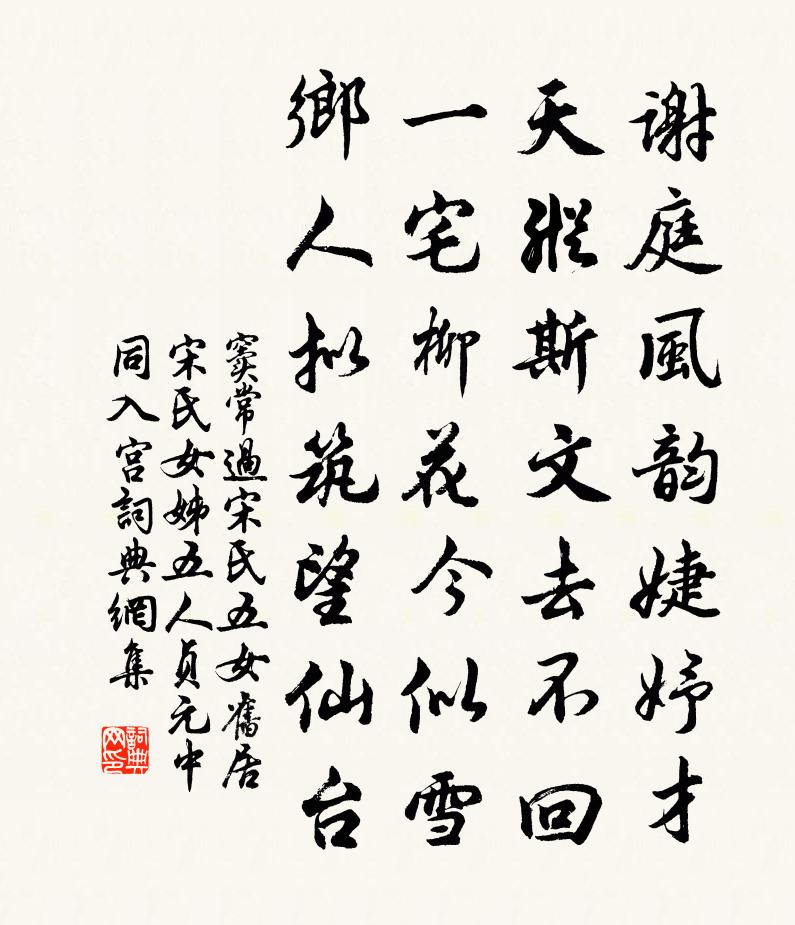 谢庭風韵婕妤才
天縱斯文去不回
一宅柳花今似雪
鄉人拟筑望仙台
窦常過宋氏五女舊居
宋氏女姊五人貞元中
同入宮詞典網集
詞典网印